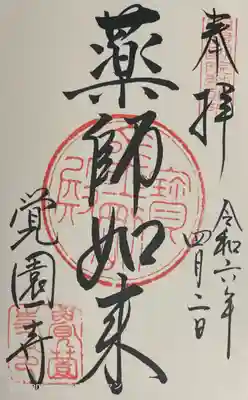 奉拝
令和六年
四月二日
薬師如来
覚園寺